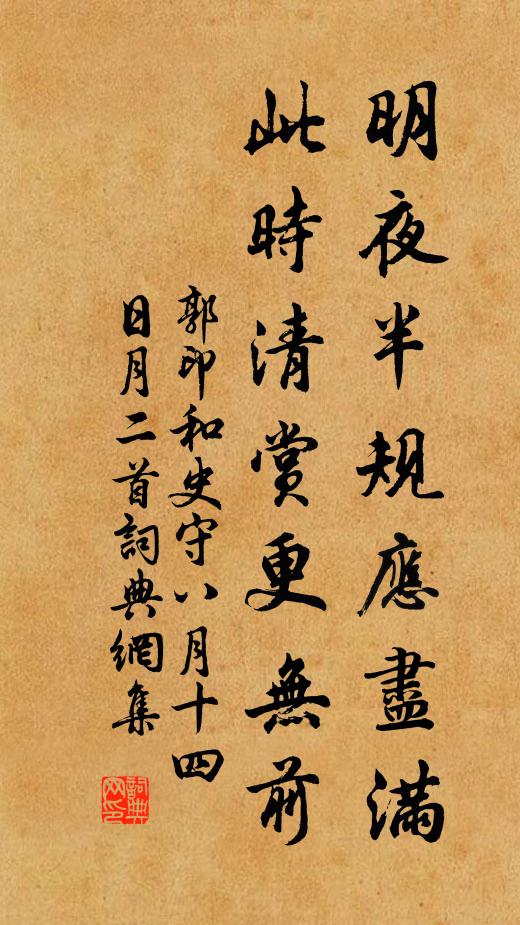 明夜半規應盡滿
此時清賞更無前
郭印和史守八月十四
日月二首詞典網集
詞典
网印